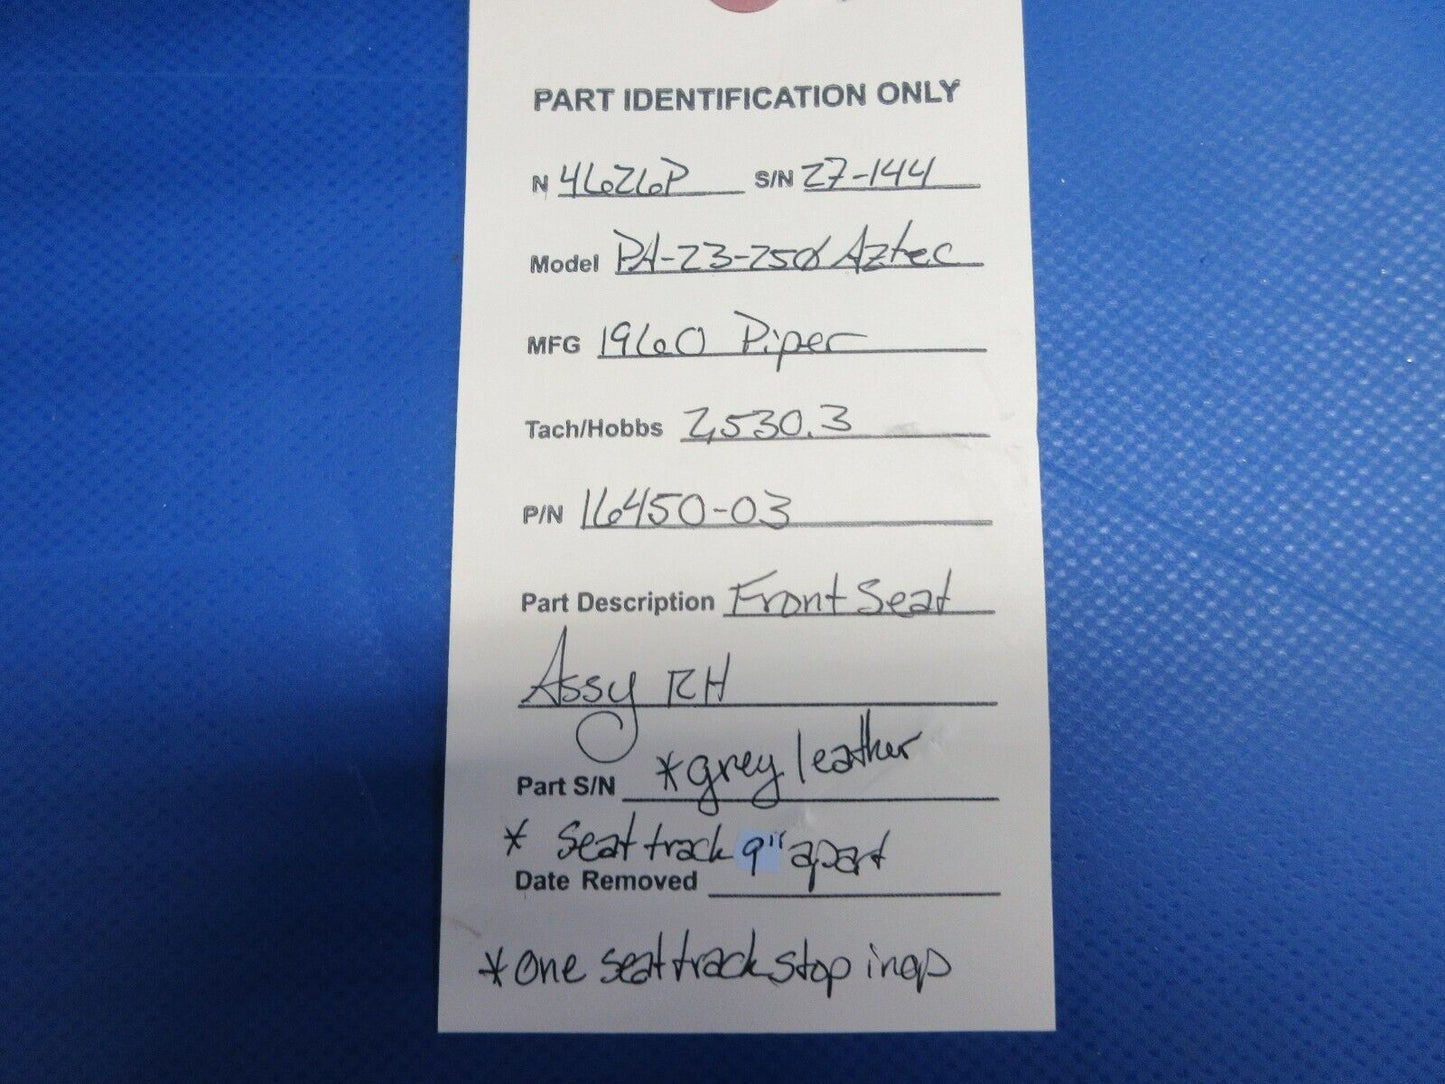 PART IDENTIFICATION ONLY
N 4626P S/N 27-144
Model PA-23-250 Aztec
MFG 1960 Piper
Tach/Hobbs 2,530.3
P/N 16450-03
Part Description Front Seat
Assy RH
Part S/N *grey leather
* Seat track 9" apart
Date Removed
*one seat track stop inop